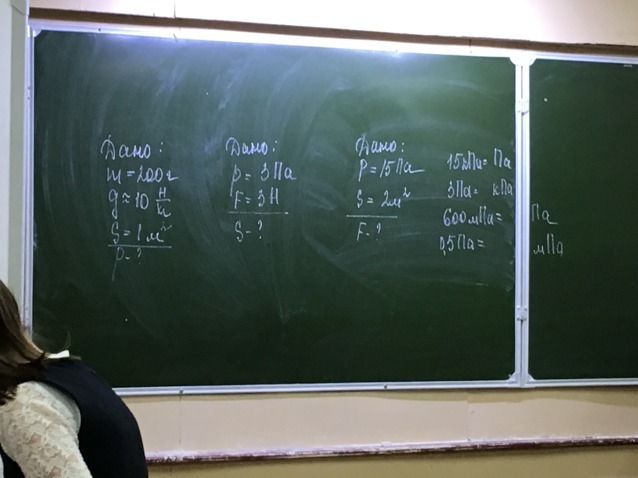 Дано:
m = 200г
g ≈ 10 Н/кг
S = 1 м²
p - ?
Дано:
p = 3Па
F = 3Н
S - ?
Дано:
P = 15Па
S = 2м²
F - ?
15кПа= Па
3Па= кПа
600мПа= Па
0,5Па= мПа